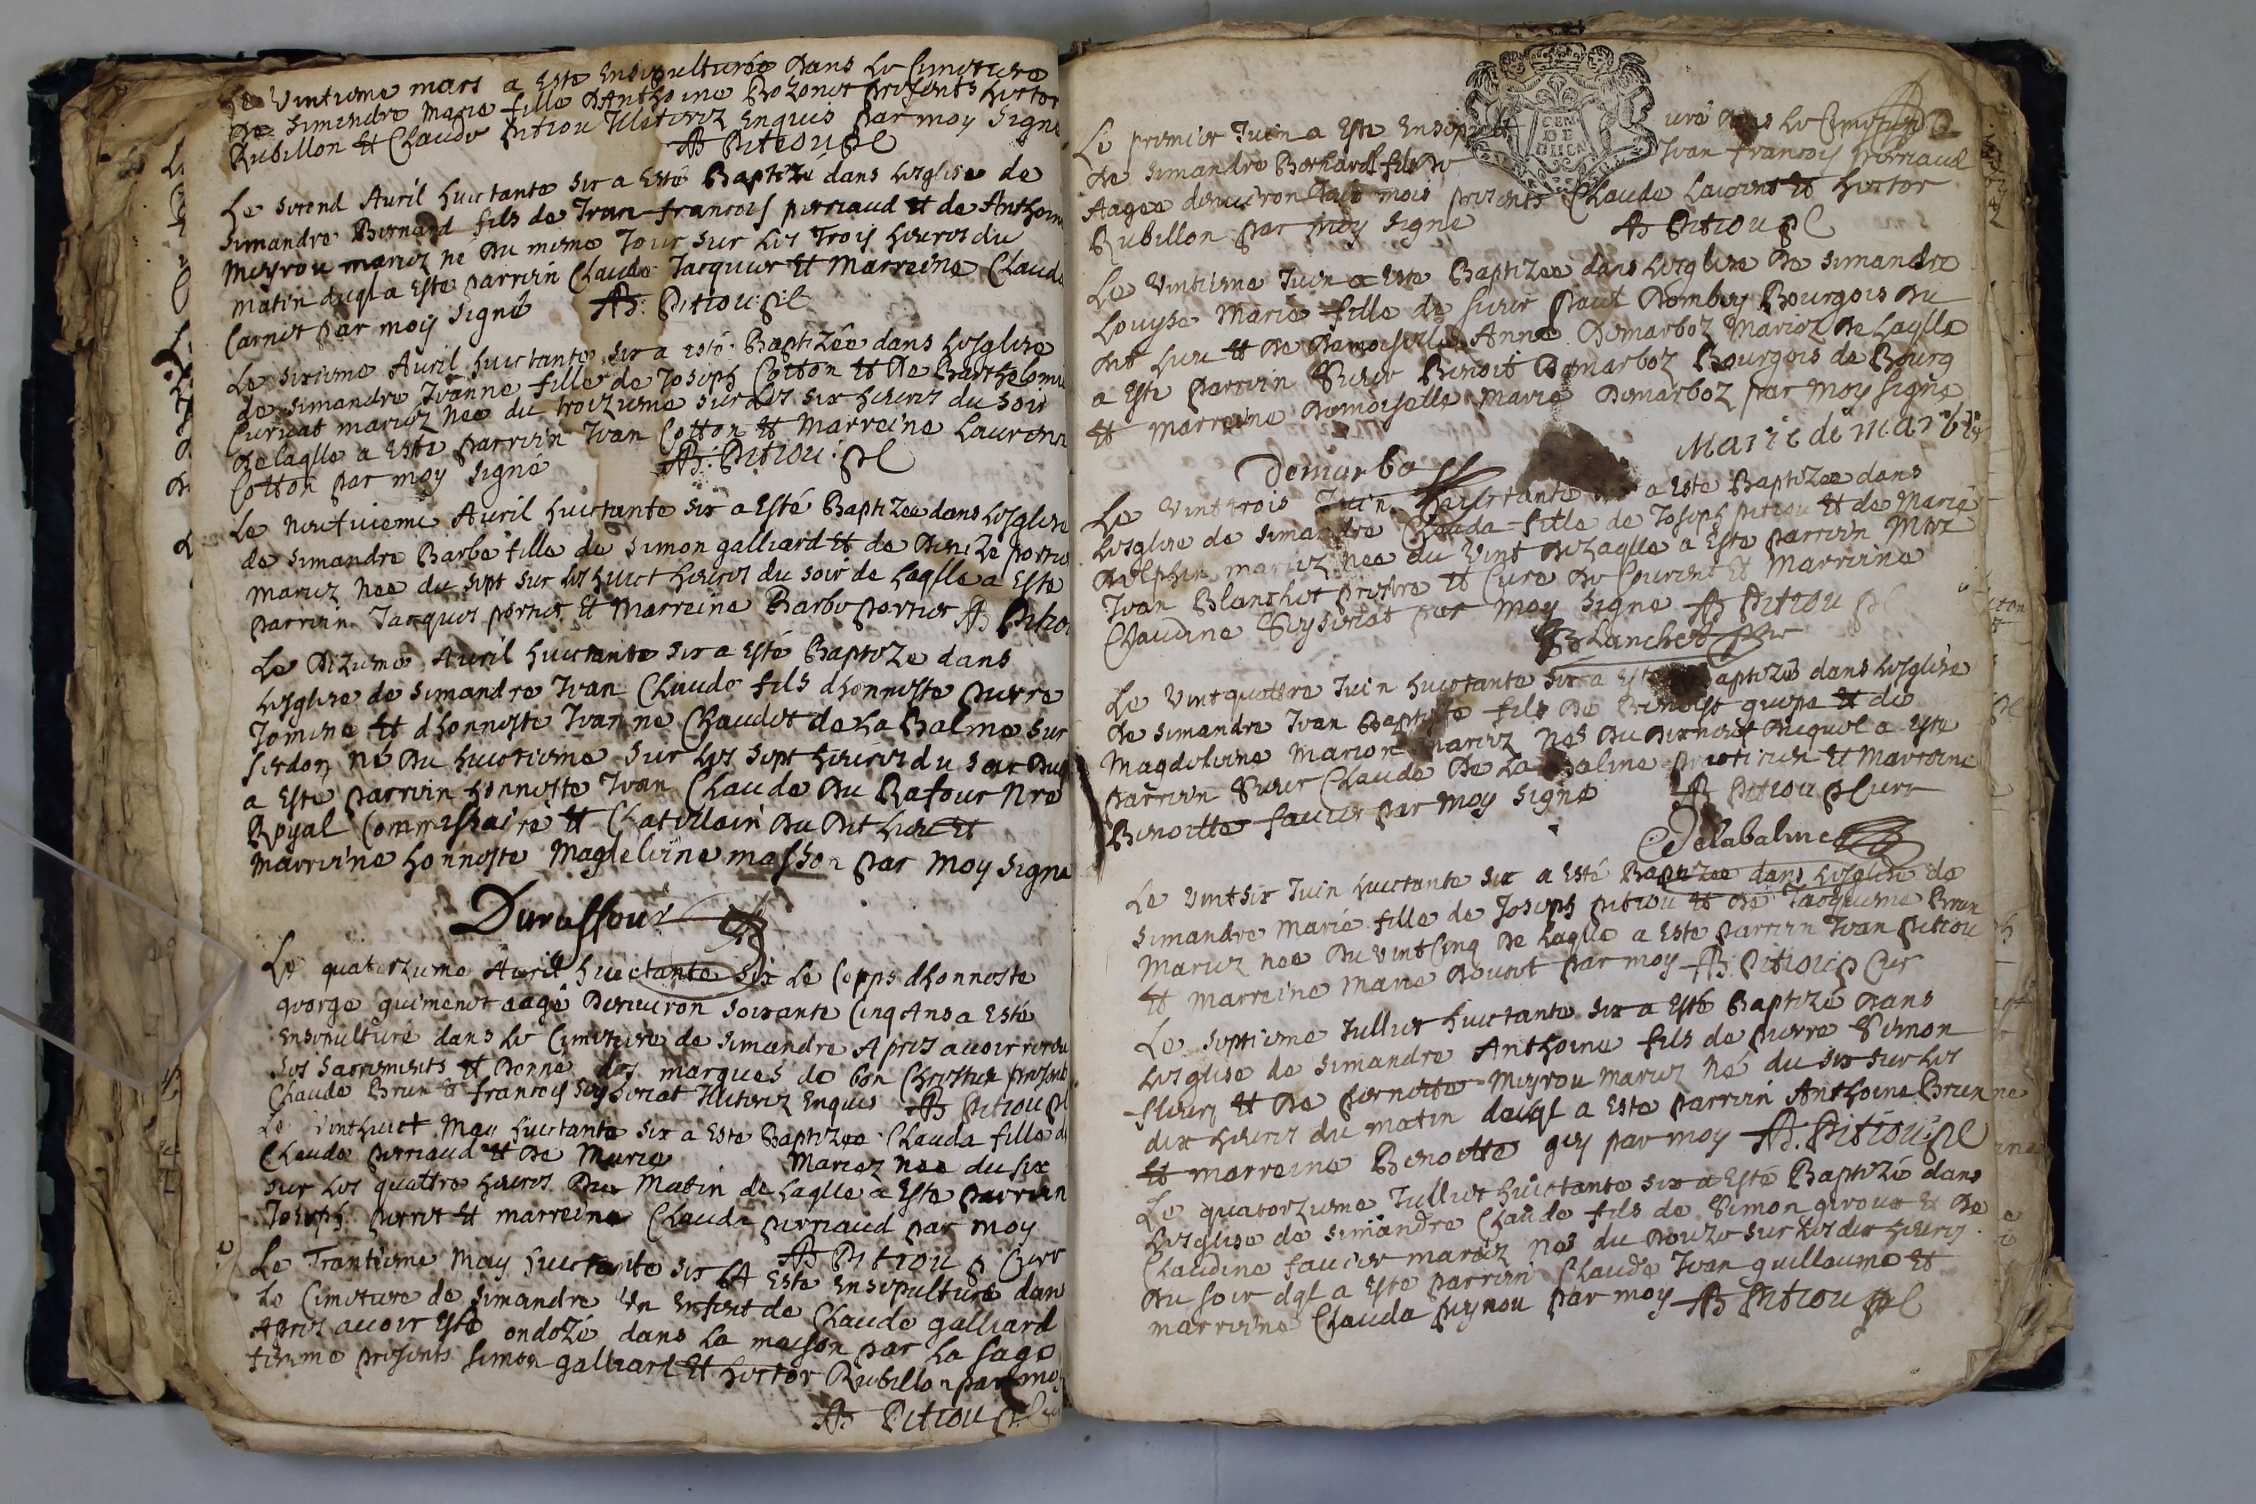 Le vintieme mars a Este Ensepulturée dans le Cimetiere
de Simandre Marie fille d'Anthoine Bozonet presents hector
Rubillon Et Claude Pitiou Illiterez Enquis par moy Signé
Ab Pitiou pC
Le second Auril huictante six a Esté Baptizé dans Leglise de
Simandre Bernard fils de Jean francois perriaud Et de Anthoine
Meyrou mariez né du mesme Jour sur les Trois heures du
matin duql a Este parrein Claude Jacquier Et Marreine Claude
Carnier par moy signé Ab: Pitiou: pC
Le sixieme Auril huictante six a esté Baptizée dans Leglise
de Simandre Jeanne fille de Joseph Cotton Et De Barthelome
Curiat mariez née du troizieme sur les six heures du soir
de laqlle a Este parrein Jean Cotton Et Marreine Laurence
Cotton par moy signé Ab: Pitiou: pC
Le neufuieme Auril huictante six a Esté Baptizée dans Leglise
de Simandre Barbe fille de Simon galliard Et de Denize portier
Mariez née du sept sur les huict heures du soir de laqlle a Este
parrein Jacques portier Et Marreine Barbe portier Ab Pitiou
Le dizieme Auril huictante six a Esté Baptizé dans
Leglise de Simandre Jean Claude fils d'honneste pierre
Et d'honneste Jeanne Chaudet de La Balme sur
Serdon né du huictieme sur les sept heures du soir duql
a Este parrein honneste Jean Claude du Rafour Nre
Royal Commissaire Et Chatellain du dit lieu Et
marreine honneste Magdeleine masson par moy signé
Duraffour
Le quatorzieme Auril huictante six Le Corps d'honneste
george guimenet aagé denuiron soixante Cinq Ans a Esté
Ensepulturé dans le Cimetiere de Simandre Apres auoir receu
les Sacrements Et donné des marques de bon Chrestien presents
Claude Brun Et francois Seyseriat Illiterez Enquis Ab Pitiou pC
Le vinthuict May huictante six a Este Baptizée Clauda fille de
Claude perriaud Et De Marie Mariez née du six
sur les quattre heures du Matin de laqlle a Este parrein
Joseph perret Et marreine Clauda perriaud par moy
Ab Pitiou p Curé
Le Trantieme May huictante six A Este Ensepulturé dans
Le Cimetiere de Simandre Un Enfent de Claude galliard
Apres auoir Esté ondozé dans La maison par la sage
femme presents Simon galliard Et hector Rubillon par moy
Ab Pitiou pC
Le premier Juin a Este Ensepulturé dans le Cimetiere
de Simandre Bernard fils de Jean francois perriaud
Aagee denuiron deux mois presents Claude Laurent Et hector
Rubillon par moy signé Ab Pitiou pC
Le Vintieme Juin a Este Baptizee dans Leglise de Simandre
Louyse Marie fille de sieur Paul Dombey Bourgois du
dit lieu Et de demoiselle Anne Demarboz Mariez de laqlle
a Este parrein Sieur Benoit Demarboz Bourgois de Bourg
Et marreine demoiselle Marie Demarboz par moy signé
Marie de marboz
Demarboz
Le Vinttrois Juin huictante six a Este Baptizée dans
Leglise de Simandre Clauda fille de Joseph pitiou Et de Marie
Delphin mariez née du Vint de laqlle a Este parrein Mre
Jean Blanchet prestre Et Cure de Courent Et Marreine
Claudine Seyseriat par moy signé Ab Pitiou pC
Blanchet
Le Vintquattre Juin huictante six a Este Baptizé dans Leglise
de Simandre Jean Baptiste fils de Benoist Et de
Magdeleine Marion mariez né du dixneuf duquel a Este
parrein Sieur Claude De La Balme praticien Et Marreine
Benoitte faurier par moy signé Ab Pitiou p Curé
Delabalme
Le Vintsix Juin huictante six a Esté Baptizée dans Leglise de
Simandre Marie fille de Joseph pitiou Et de Jaqueme Brun
Mariez née du Vintcinq De laqlle a Este parrein Jean pitiou
Et marreine Marie douret par moy Ab Pitiou p Cur
Le septieme Jullier huictante six a Esté Baptizé dans
Leglise de Simandre Anthoine fils de pierre Simon
fleury Et De pernette Meyrou mariez né du six sur les
dix heures du matin deuql a Este parrein Anthoine Brun
Et marreine Benoitte gey par moy Ab. Pitiou pC
Le quatorzieme Jullier huictante six a Esté Baptizé dans
Leglise de Simandre Claude fils de Simon giroux Et De
Claudine faurier mariez né du douze sur les dix heures
du soir dql a Este parrein Claude Jean guillaume Et
marreine Clauda peynou par moy Ab Pitiou pC